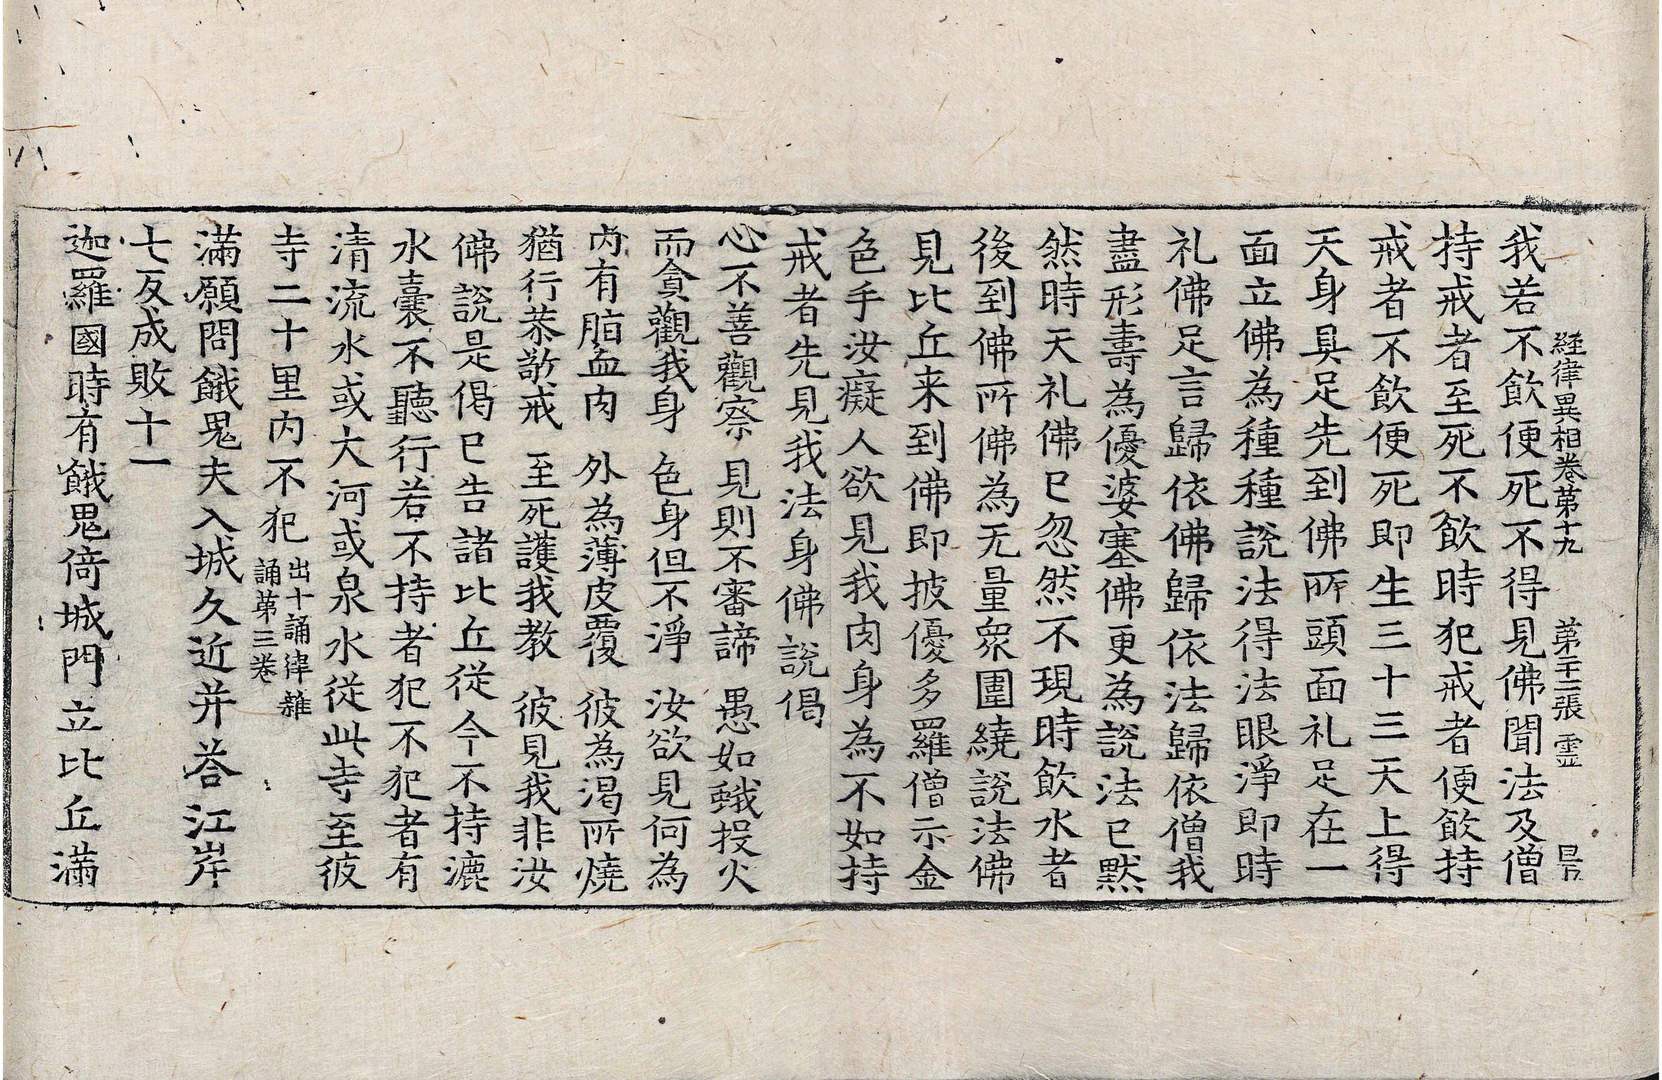 経律異相卷第十九 第十二張 霊
我若不飲便死不得見佛聞法及僧
持戒者至死不飲時犯戒者便飲持
戒者不飲便死即生三十三天上得
天身具足先到佛所頭面礼足在一
面立佛為種種説法得法眼淨即時
礼佛足言歸依佛歸依法歸依僧我
盡形壽為優婆塞佛更為説法已黙
然時天礼佛已忽然不現時飲水者
後到佛所佛為无量衆圍繞説法佛
見比丘来到佛即披優多羅僧示金
色手汝癡人欲見我肉身為不如持
戒者先見我法身佛説偈
心不善觀察 見則不審諦 愚如蛾投火
而貪觀我身 色身但不淨 汝欲見何為
内有脂血肉 外為薄皮覆 彼為渴所燒
猶行恭敬戒 至死護我教 彼見我非汝
佛説是偈已告諸比丘從今不持漉
水囊不聽行若不持者犯不犯者有
清流水或大河或泉水從此寺至彼
寺二十里内不犯 出十誦律雜
誦第三卷
滿願問餓鬼夫入城久近并荅江岸
七反成敗十一
迦羅國時有餓鬼倚城門立比丘滿